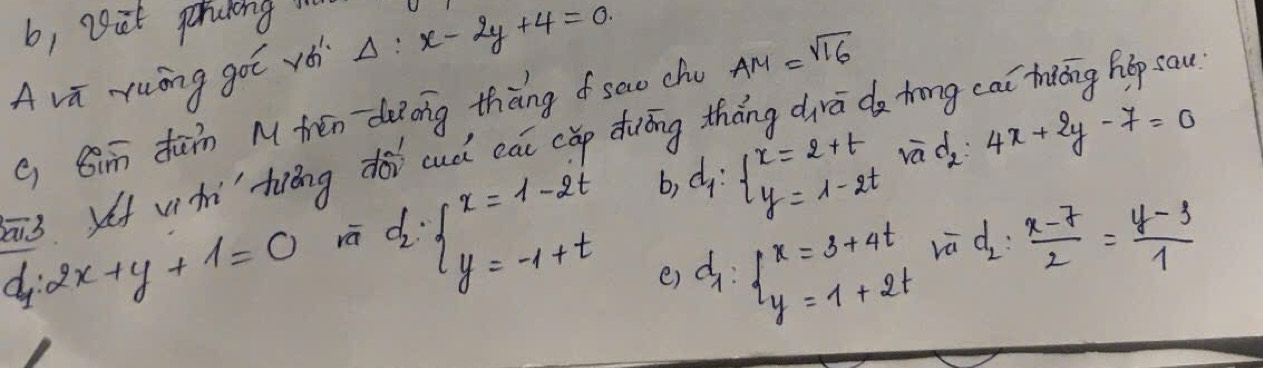 b, Viết phương
A và vuông góc với Δ : x - 2y + 4 = 0.
c, Tìm điểm M trên đường thẳng d sao cho AM = √16
Bài 3. Xét vị trí tương đối của các cặp đường thẳng d₁ và d₂ trong các trường hợp sau:
d₁: 2x + y + 1 = 0 và d₂: { x = 1 - 2t y = -1 + t
b, d₁: { x = 2 + t y = 1 - 2t và d₂: 4x + 2y - 7 = 0
c, d₁: { x = 3 + 4t y = 1 + 2t và d₂: (x - 7)/2 = (y - 3)/1